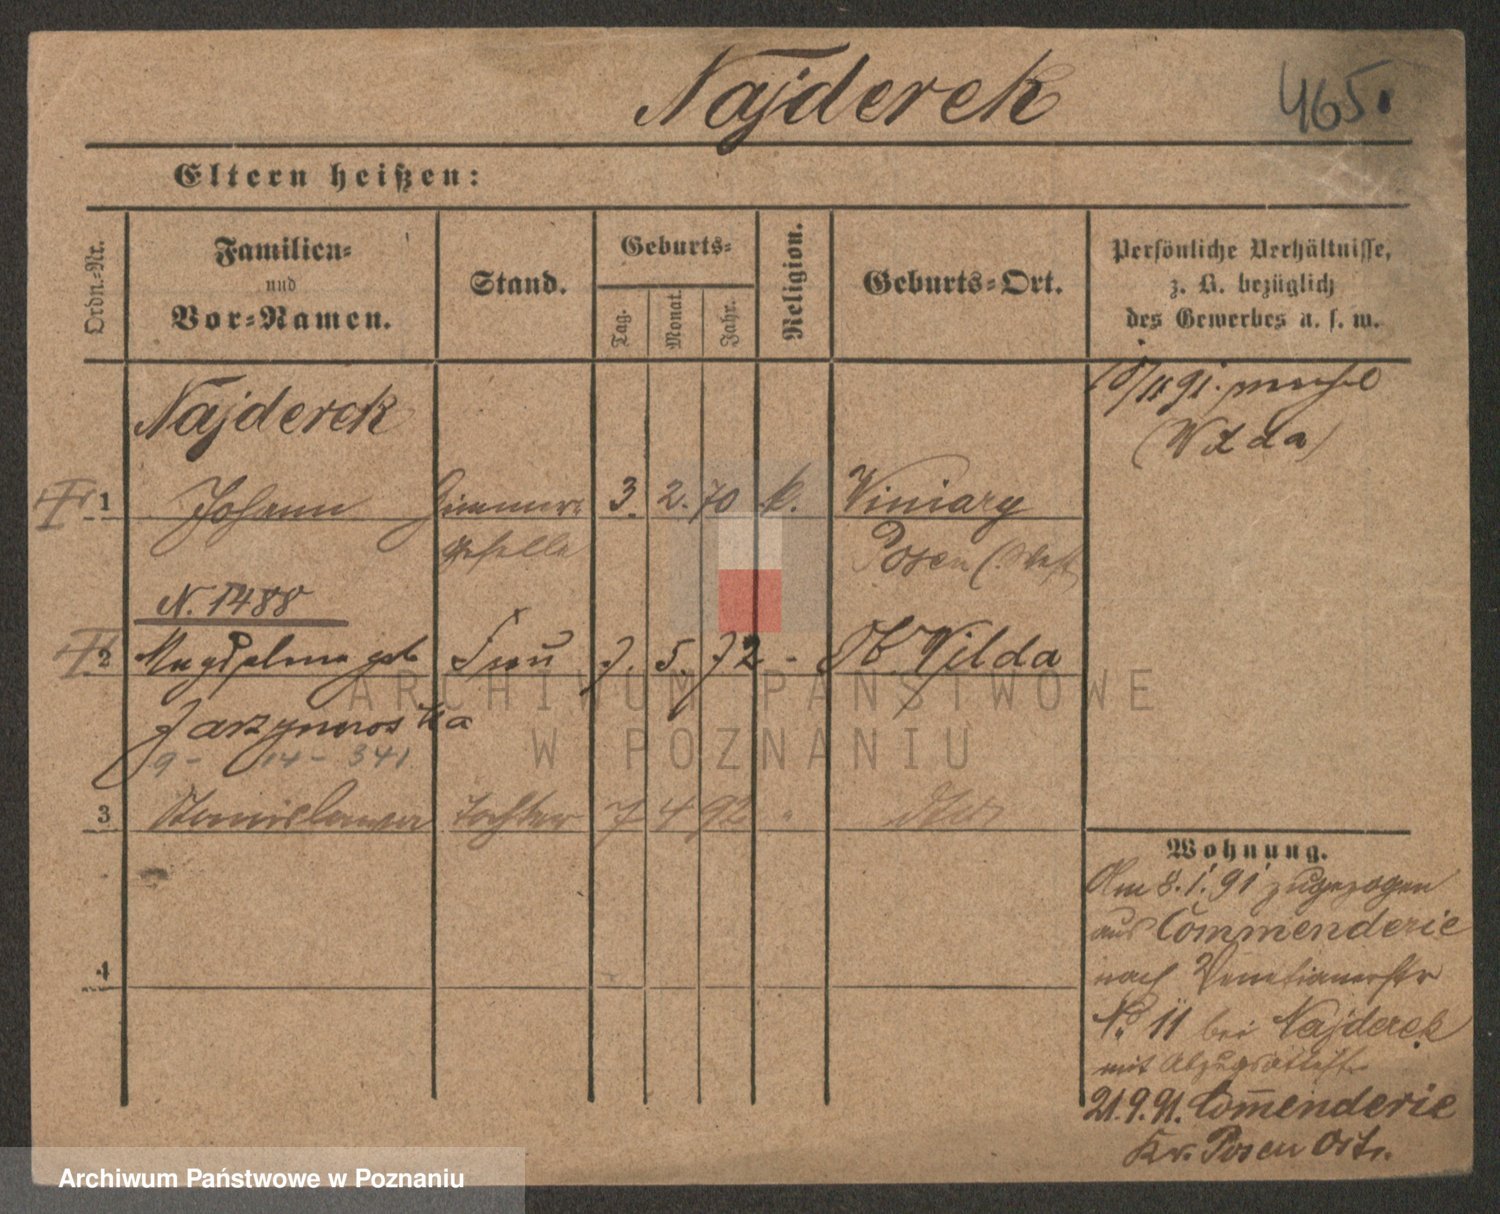 Najderek
465.
Eltern heißen:
Ordn.-Nr.
Familien-
und
Vor-Namen.
Stand.
Geburts-
Tag.
Monat.
Jahr.
Religion.
Geburts-Ort.
Persönliche Verhältnisse,
z. B. bezüglich
des Gewerbes u. s. w.
Najderek
(Wilda)
1 Johann Zimmer- 3. 2. 70 k. Winiary
geselle Posen (West
N. 1488
2 Magdalena geb Frau 7. 5. 72 - Ob. Wilda
Jarzynowska
9 - 14 - 341
3 Stanislawa Tochter 7 4 92 "
4
Wohnung.
Am 8.1.91 zugezogen
aus Commenderie
nach Venetianerstr
No. 11 bei Najderek
mit Abzugsattest.
21.9.91. Commenderie
Kr. Posen Ost.
ARCHIWUM PAŃSTWOWE
W POZNANIU
Archiwum Państwowe w Poznaniu